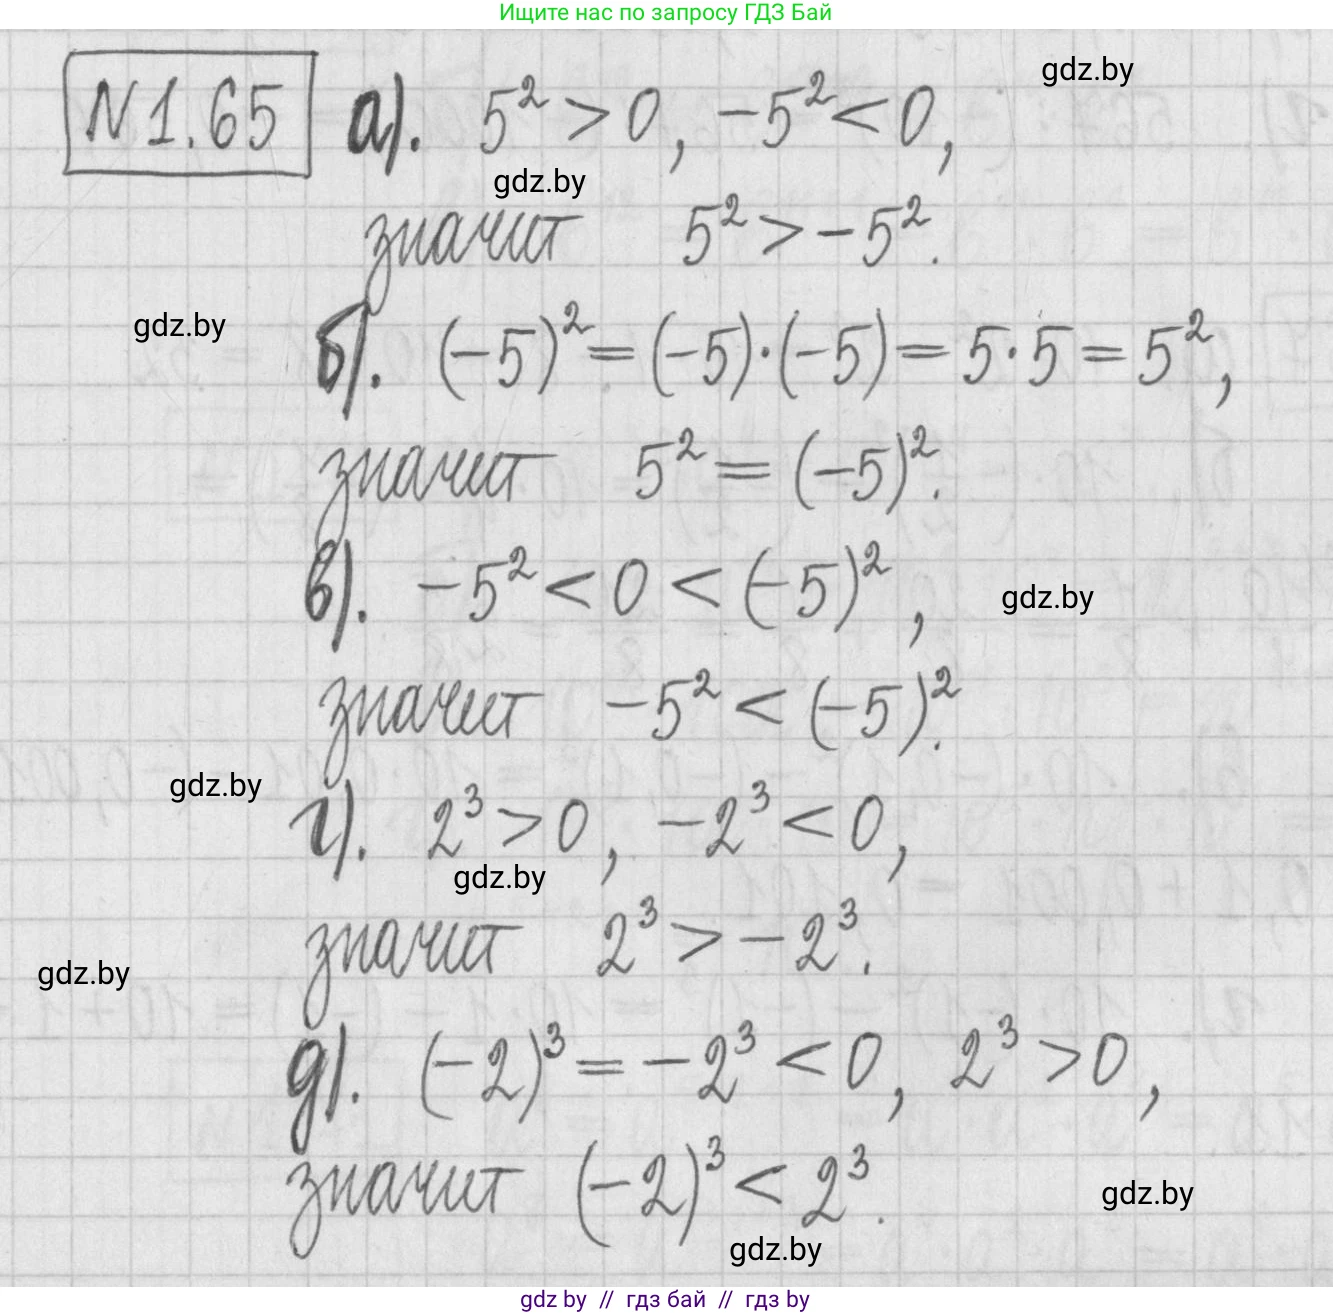 Ищите нас по запросу ГДЗ Бай
gdz.by
№1.65 а). 5² > 0, -5² < 0,
gdz.by
значит 5² > -5².
gdz.by
б). (-5)² = (-5)·(-5) = 5·5 = 5²,
значит 5² = (-5)².
в). -5² < 0 < (-5)²,
gdz.by
значит -5² < (-5)².
gdz.by
г). 2³ > 0, -2³ < 0,
gdz.by
значит 2³ > -2³.
gdz.by
д). (-2)³ = -2³ < 0, 2³ > 0,
значит (-2)³ < 2³.
gdz.by
gdz.by
gdz by // гдз бай // gdz by